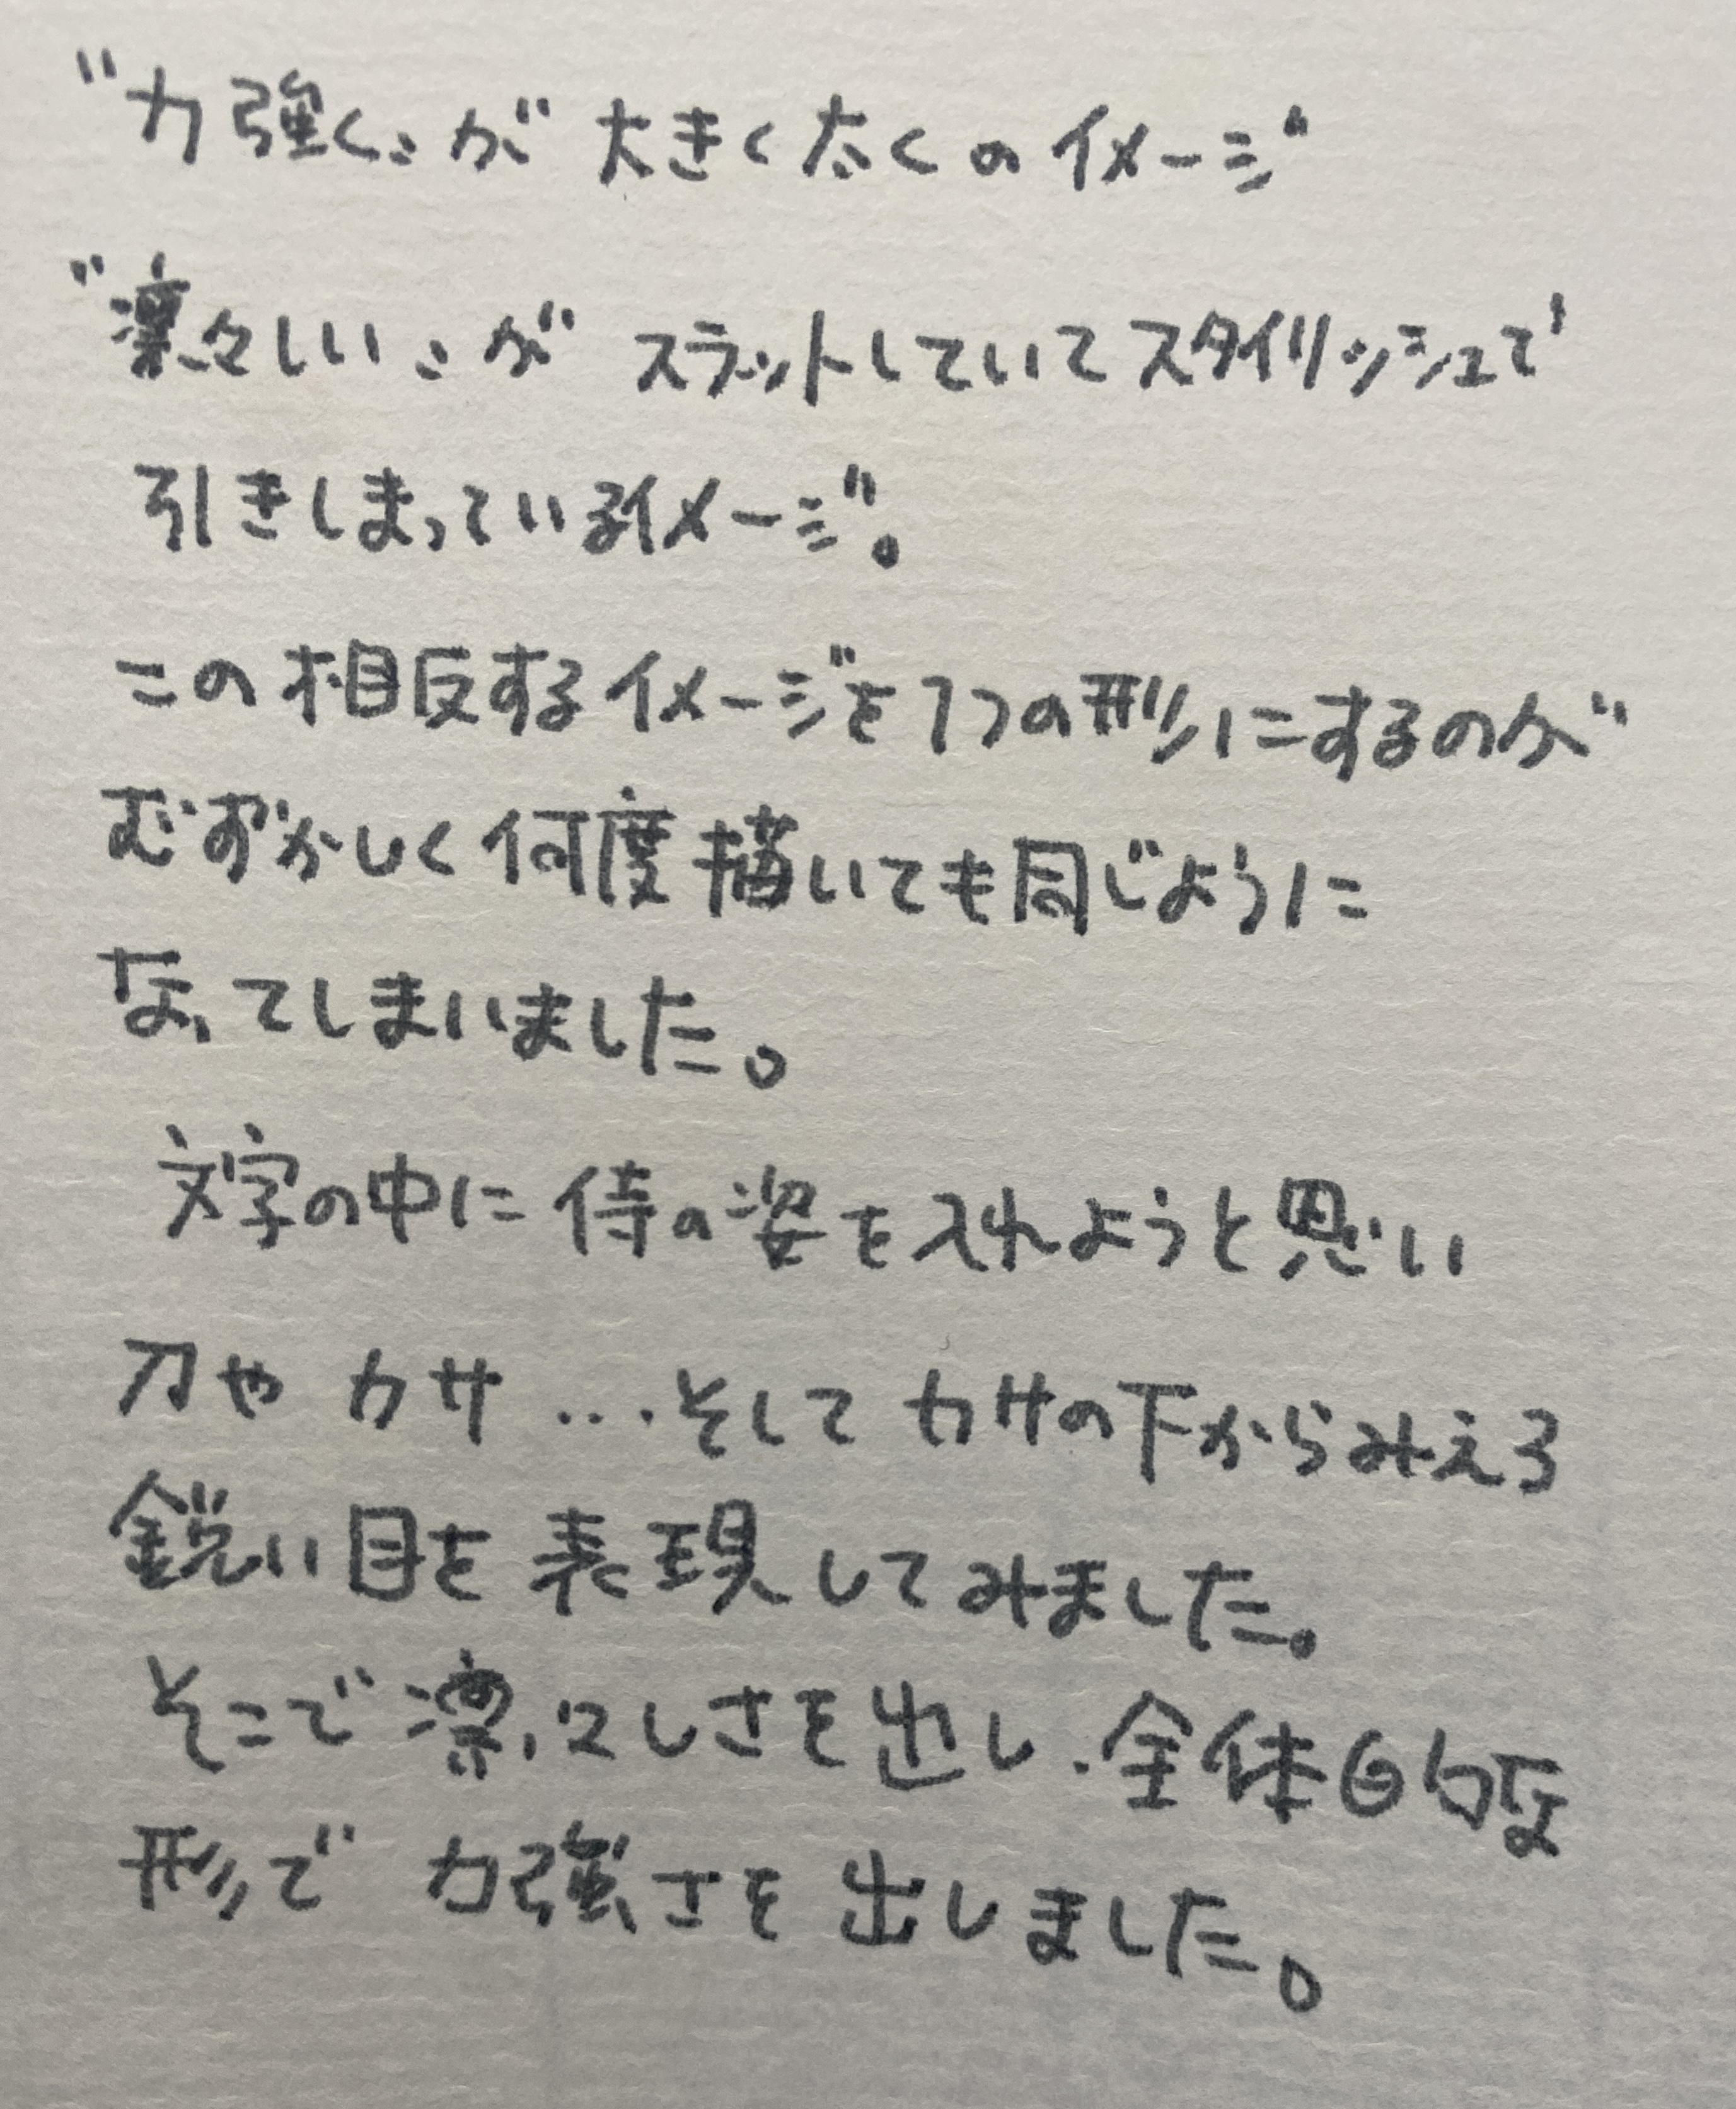 "力強く〟が 大きく太くのイメージ
"凛々しい〟が スラットしていてスタイリッシュで
引きしまっているイメージ。
この相反するイメージを1つの形にするのが
むずかしく何度描いても同じように
なってしまいました。
文字の中に侍の姿を入れようと思い
刀やカサ…そしてカサの下からみえる
鋭い目を表現してみました。
そこで凛々しさを出し、全体的な
形で力強さを出しました。